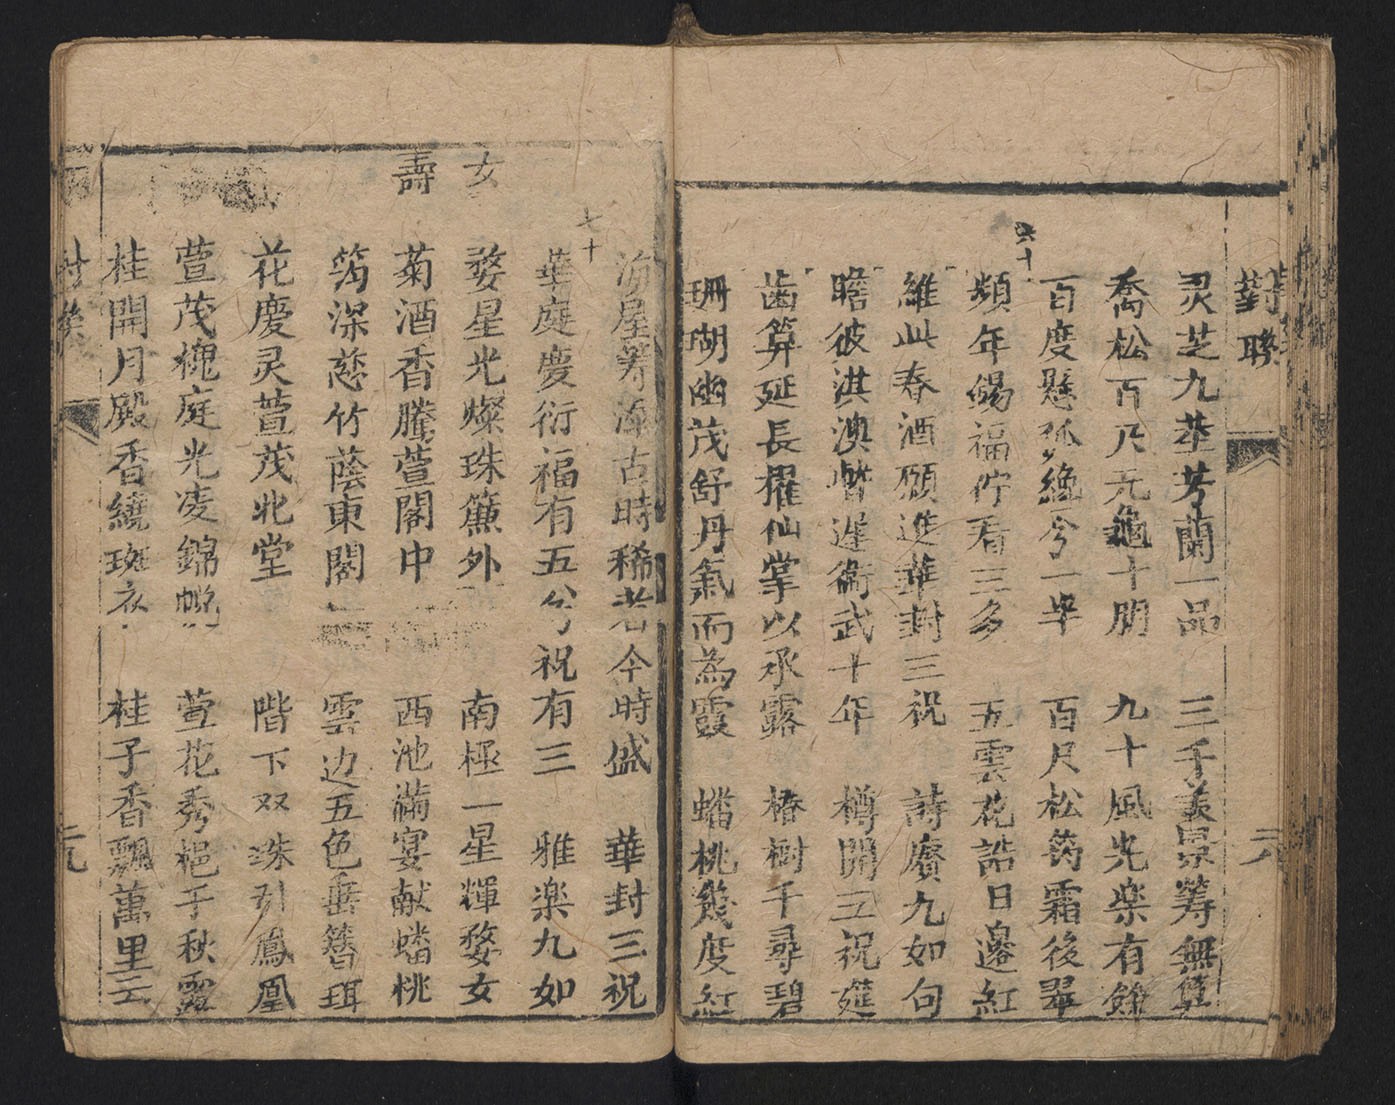 對聯
灵芝九莖芳蘭一品 三千美景筭無筭
喬松百尺元龜十朋 九十風光楽有餘
百度懸弧纔今一半 百尺松筠霜後翠
六十
頻年锡福佇看三多 五雲花誥日邊紅
維此春酒願進華封三祝 詩賡九如句
瞻彼淇澳暫遲衛武十年 樽開三祝筵
齒算延長擢仙掌以承露 椿樹千尋碧
珊瑚幽茂舒丹氣而為霞 蟠桃幾度紅
海屋筹添古時稀者今時盛 華封三祝
七十
華庭慶衍福有五兮祝有三 雅楽九如
女
婺星光燦珠簾外 南極一星輝婺女
壽
菊酒香騰萱閣中 西池滿宴献蟠桃
筠深慈竹蔭東閣 雲边五色垂簪珥
花慶灵萱茂北堂 階下双珠引鳳凰
萱茂槐庭光凌錦帨 萱花秀挹千秋露
桂開月殿香繞斑衣 桂子香飄萬里云
對聯
二九